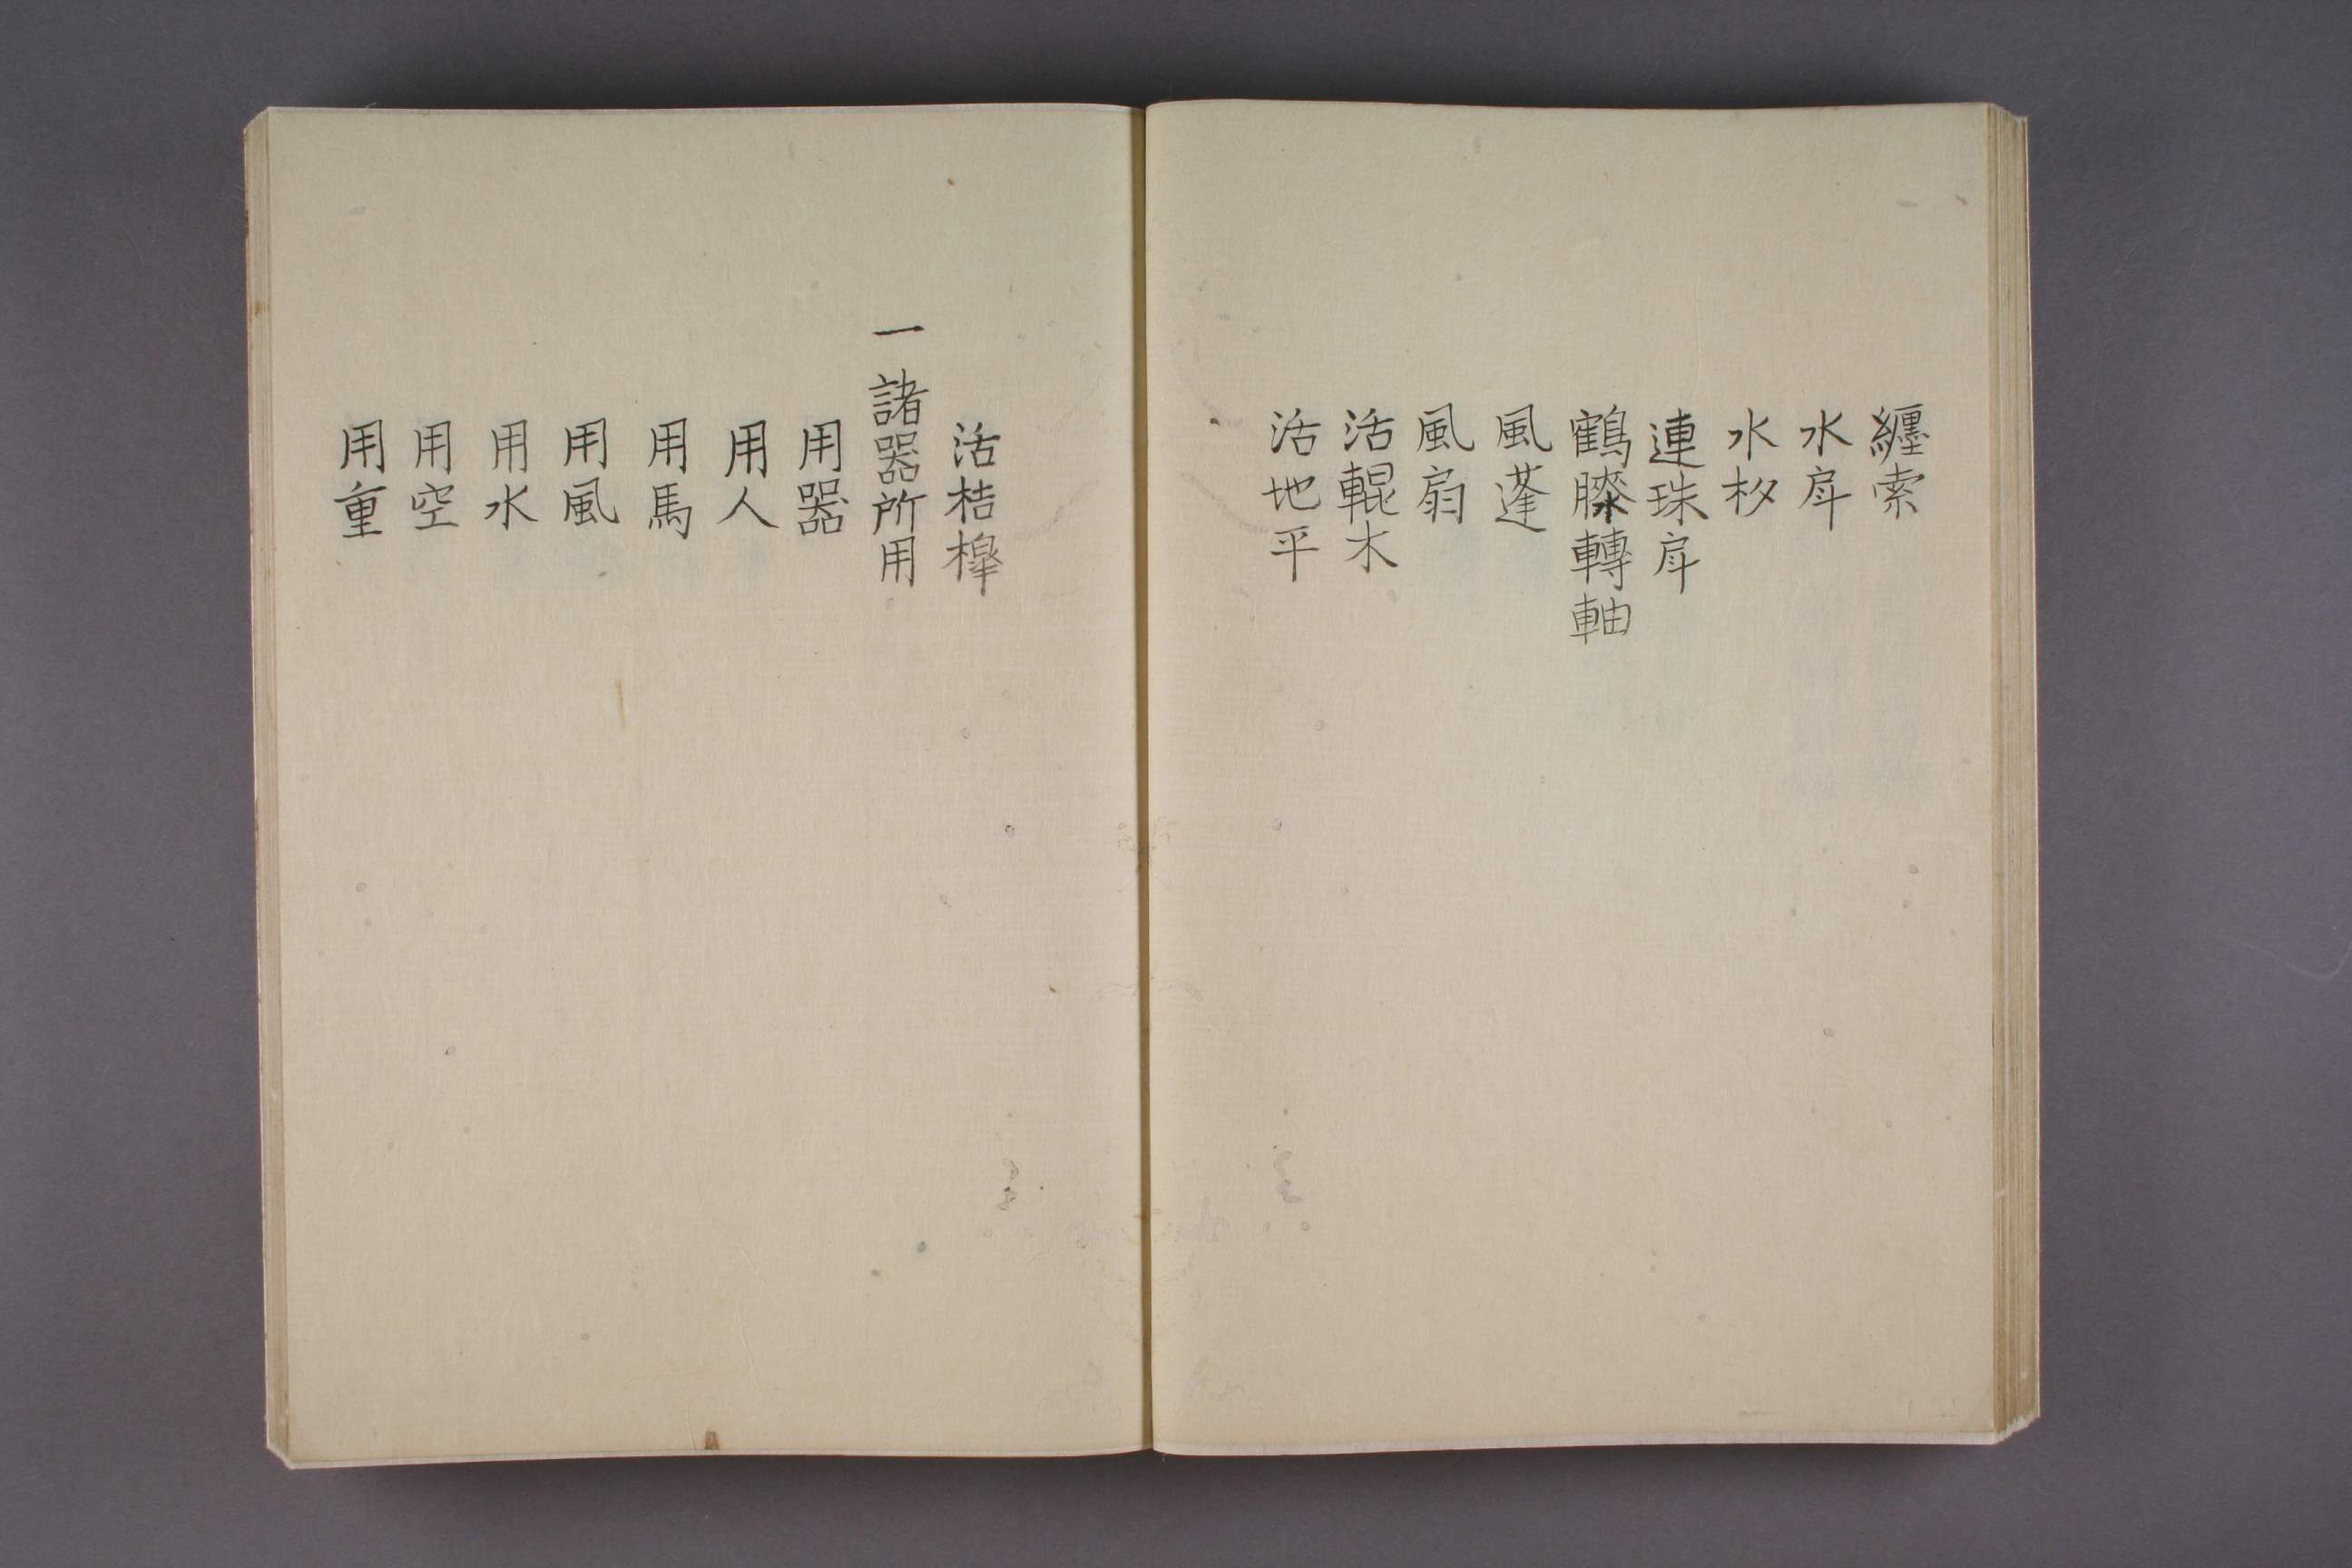 纏索
水戽
水杴
連珠戽
鶴膝轉軸
風蓬
風扇
活輥木
活地平
活桔槔
一諸器所用
用器
用人
用馬
用風
用水
用空
用重